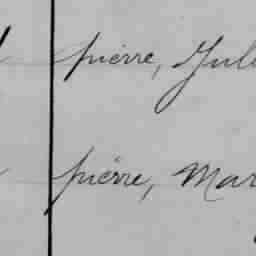 pierre, Jul
pierre, Mar